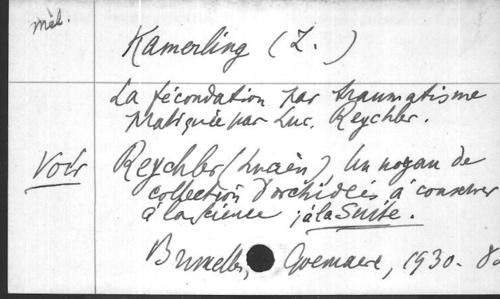 mél.
Kamerling (Z.)
La fécondation par traumatisme
pratiquée par Luc. Reychler.
Voir Reychler (Lucien), Un noyau de
collection d'orchidées à conserver
à la science ; à la suite.
Bruxelles, Goemaere, 1930. 8o